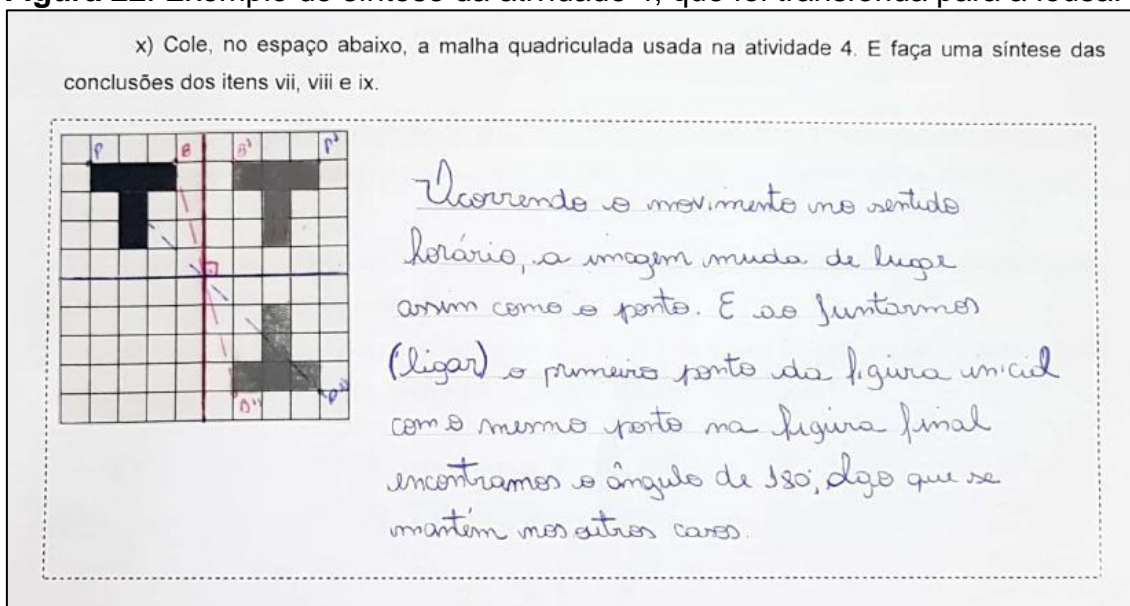 Figura 22: Exemplo de síntese da atividade 4, que foi transferida para a lousa.
x) Cole, no espaço abaixo, a malha quadriculada usada na atividade 4. E faça uma síntese das
conclusões dos itens vii, viii e ix.
P B B' P'
B'' P''
Ocorrendo o movimento no sentido
horário, a imagem muda de lugar
assim como o ponto. E ao juntarmos
(ligar) o primeiro ponto da figura inicial
com o mesmo ponto na figura final
encontramos o ângulo de 180°, algo que se
mantém nos outros casos.